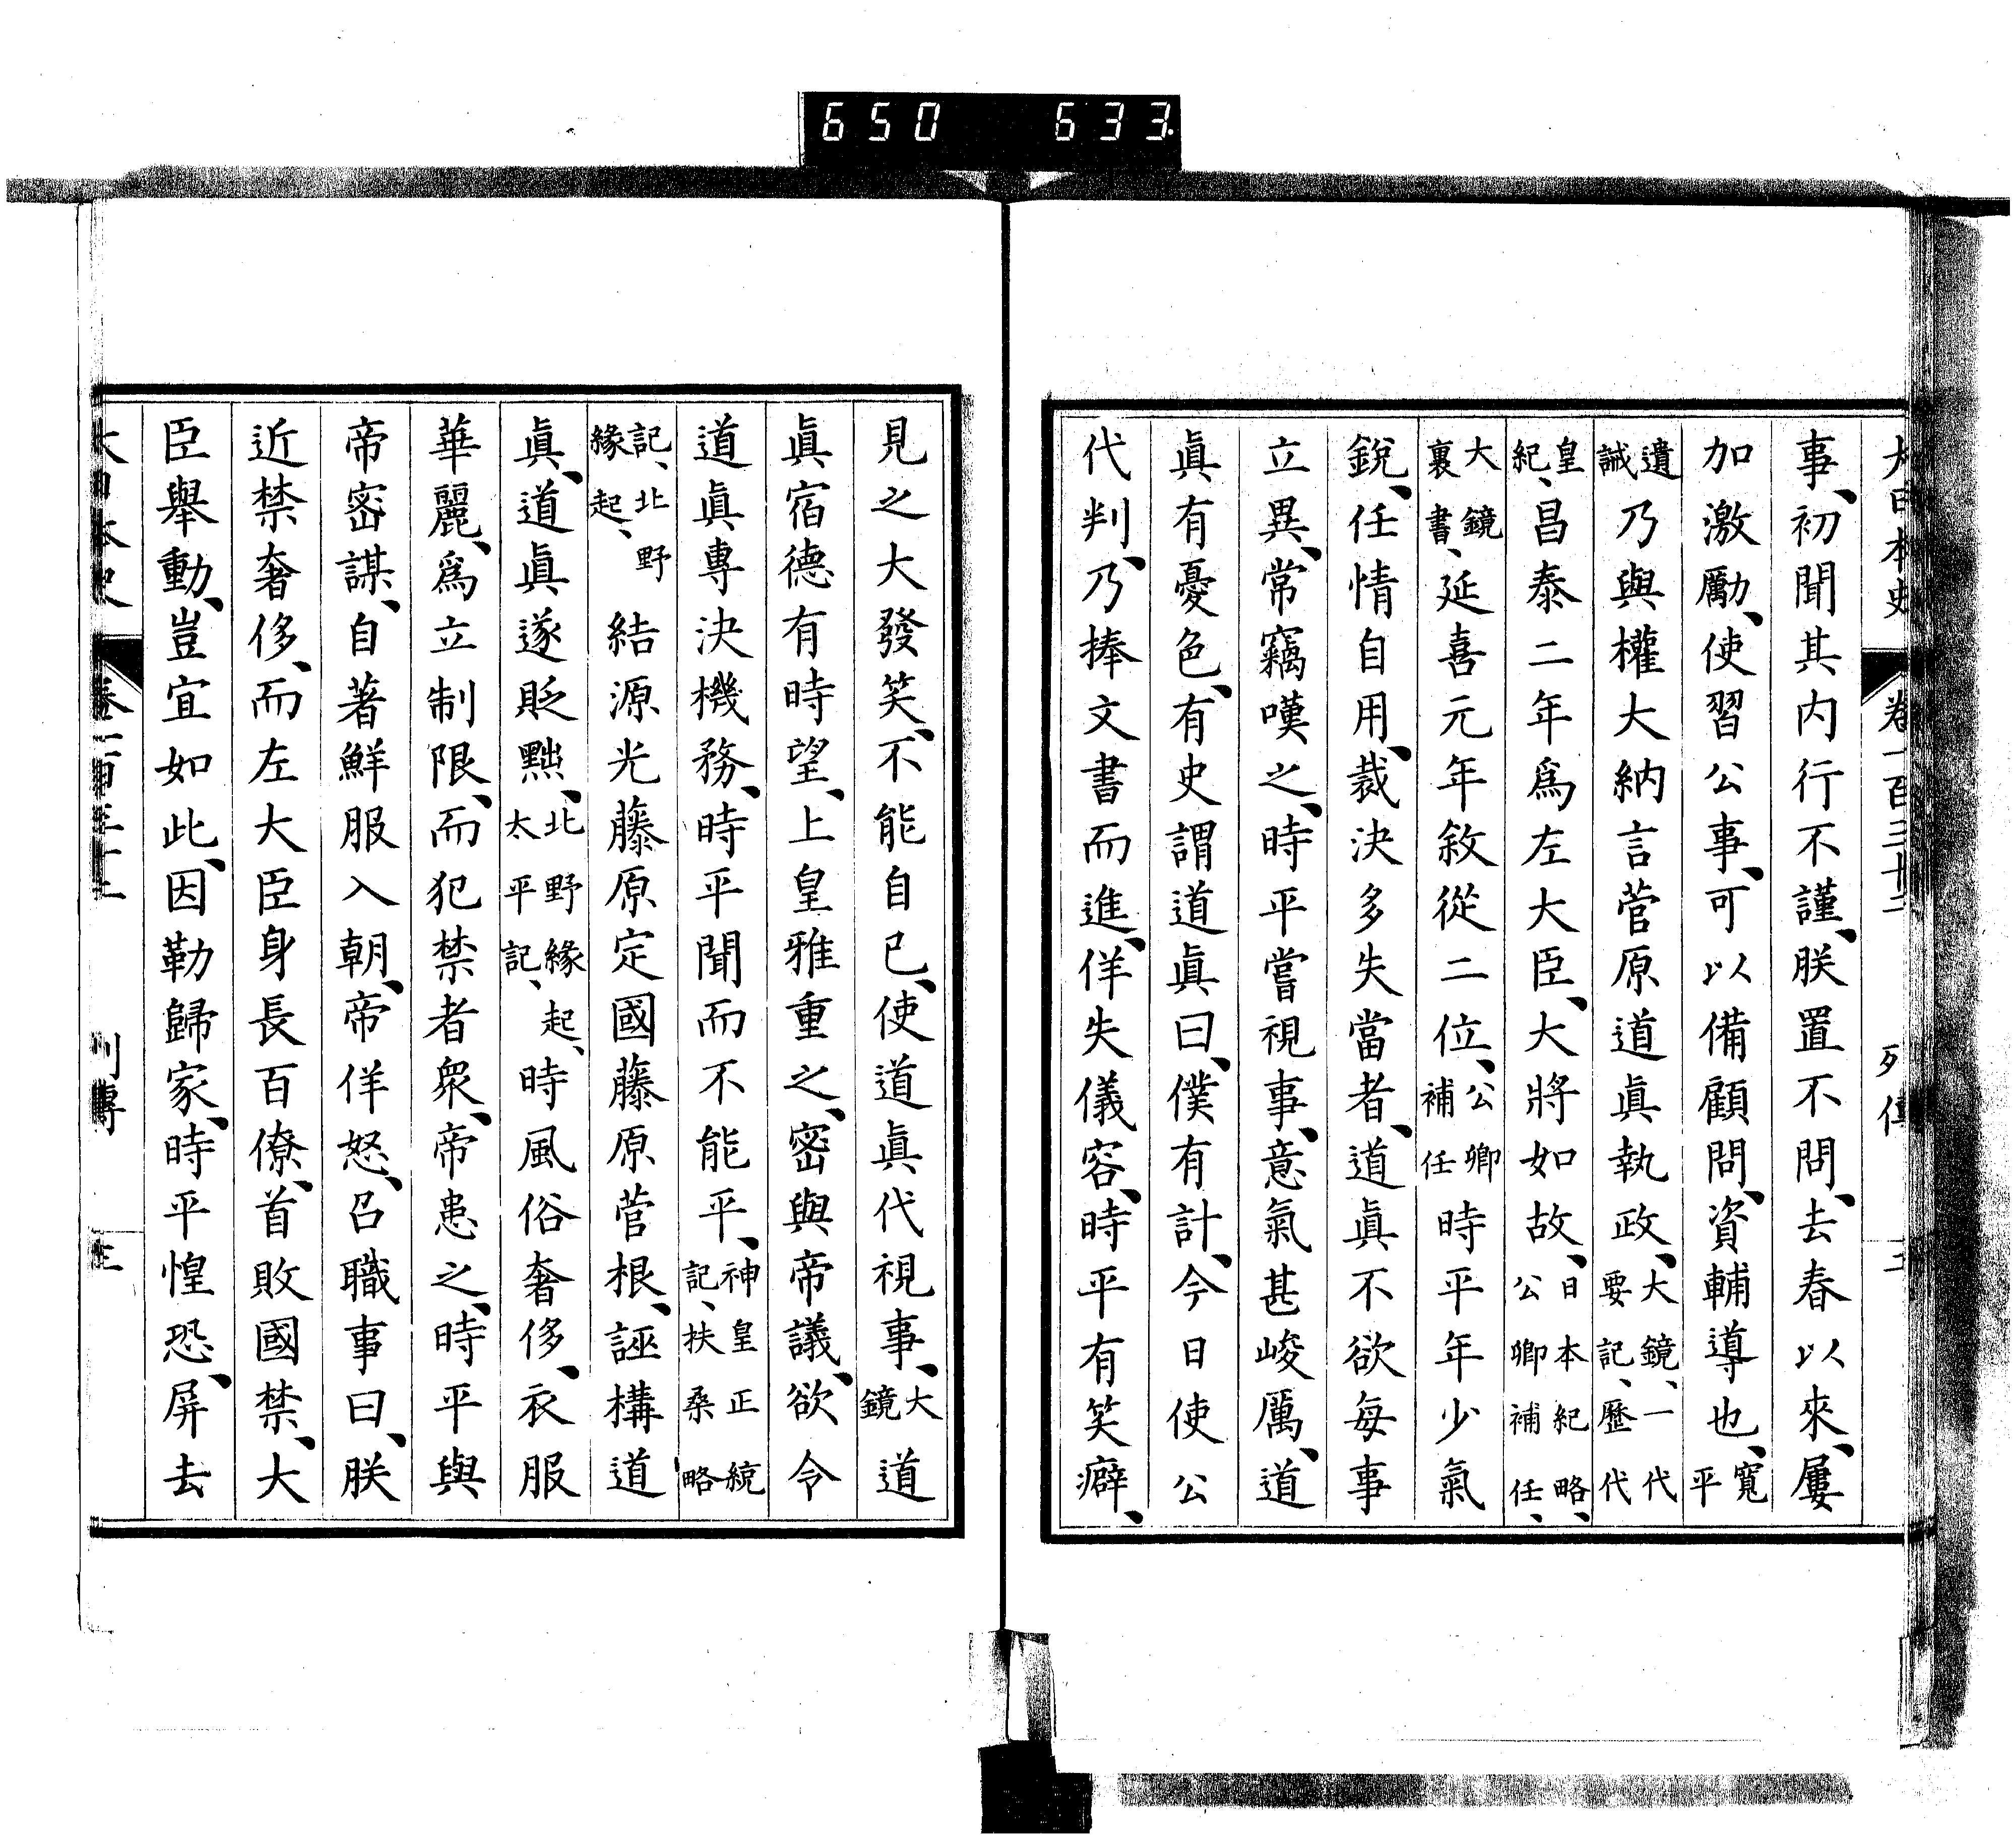 650 633
大日本史 卷一百三十二 列傳
事、初聞其内行不謹、朕置不問、去春以來、屢
加激勵、使習公事、可以備顧問、資輔導也、寬平
遺誡乃與權大納言菅原道眞執政、大鏡、一代要記、歷代
皇紀、昌泰二年爲左大臣、大將如故、日本紀略、公卿補任、
大鏡裏書、延喜元年敘從二位、公卿補任時平年少氣
銳、任情自用、裁決多失當者、道眞不欲每事
立異、常竊嘆之、時平嘗視事、意氣甚峻厲、道
眞有憂色、有史謂道眞曰、僕有計、今日使公
代判、乃捧文書而進、佯失儀容、時平有笑癖、
見之大發笑、不能自已、使道眞代視事、大鏡道
眞宿德有時望、上皇雅重之、密與帝議、欲令
道眞專決機務、時平聞而不能平、神皇正統記、扶桑略
記、北野緣起、結源光藤原定國藤原菅根、誣構道
眞、道眞遂貶黜、北野緣起、太平記、時風俗奢侈、衣服
華麗、爲立制限、而犯禁者衆、帝患之、時平與
帝密謀、自著鮮服入朝、帝佯怒、召職事曰、朕
近禁奢侈、而左大臣身長百僚、首敗國禁、大
臣舉動、豈宜如此、因勒歸家、時平惶恐、屏去
大日本史 列傳